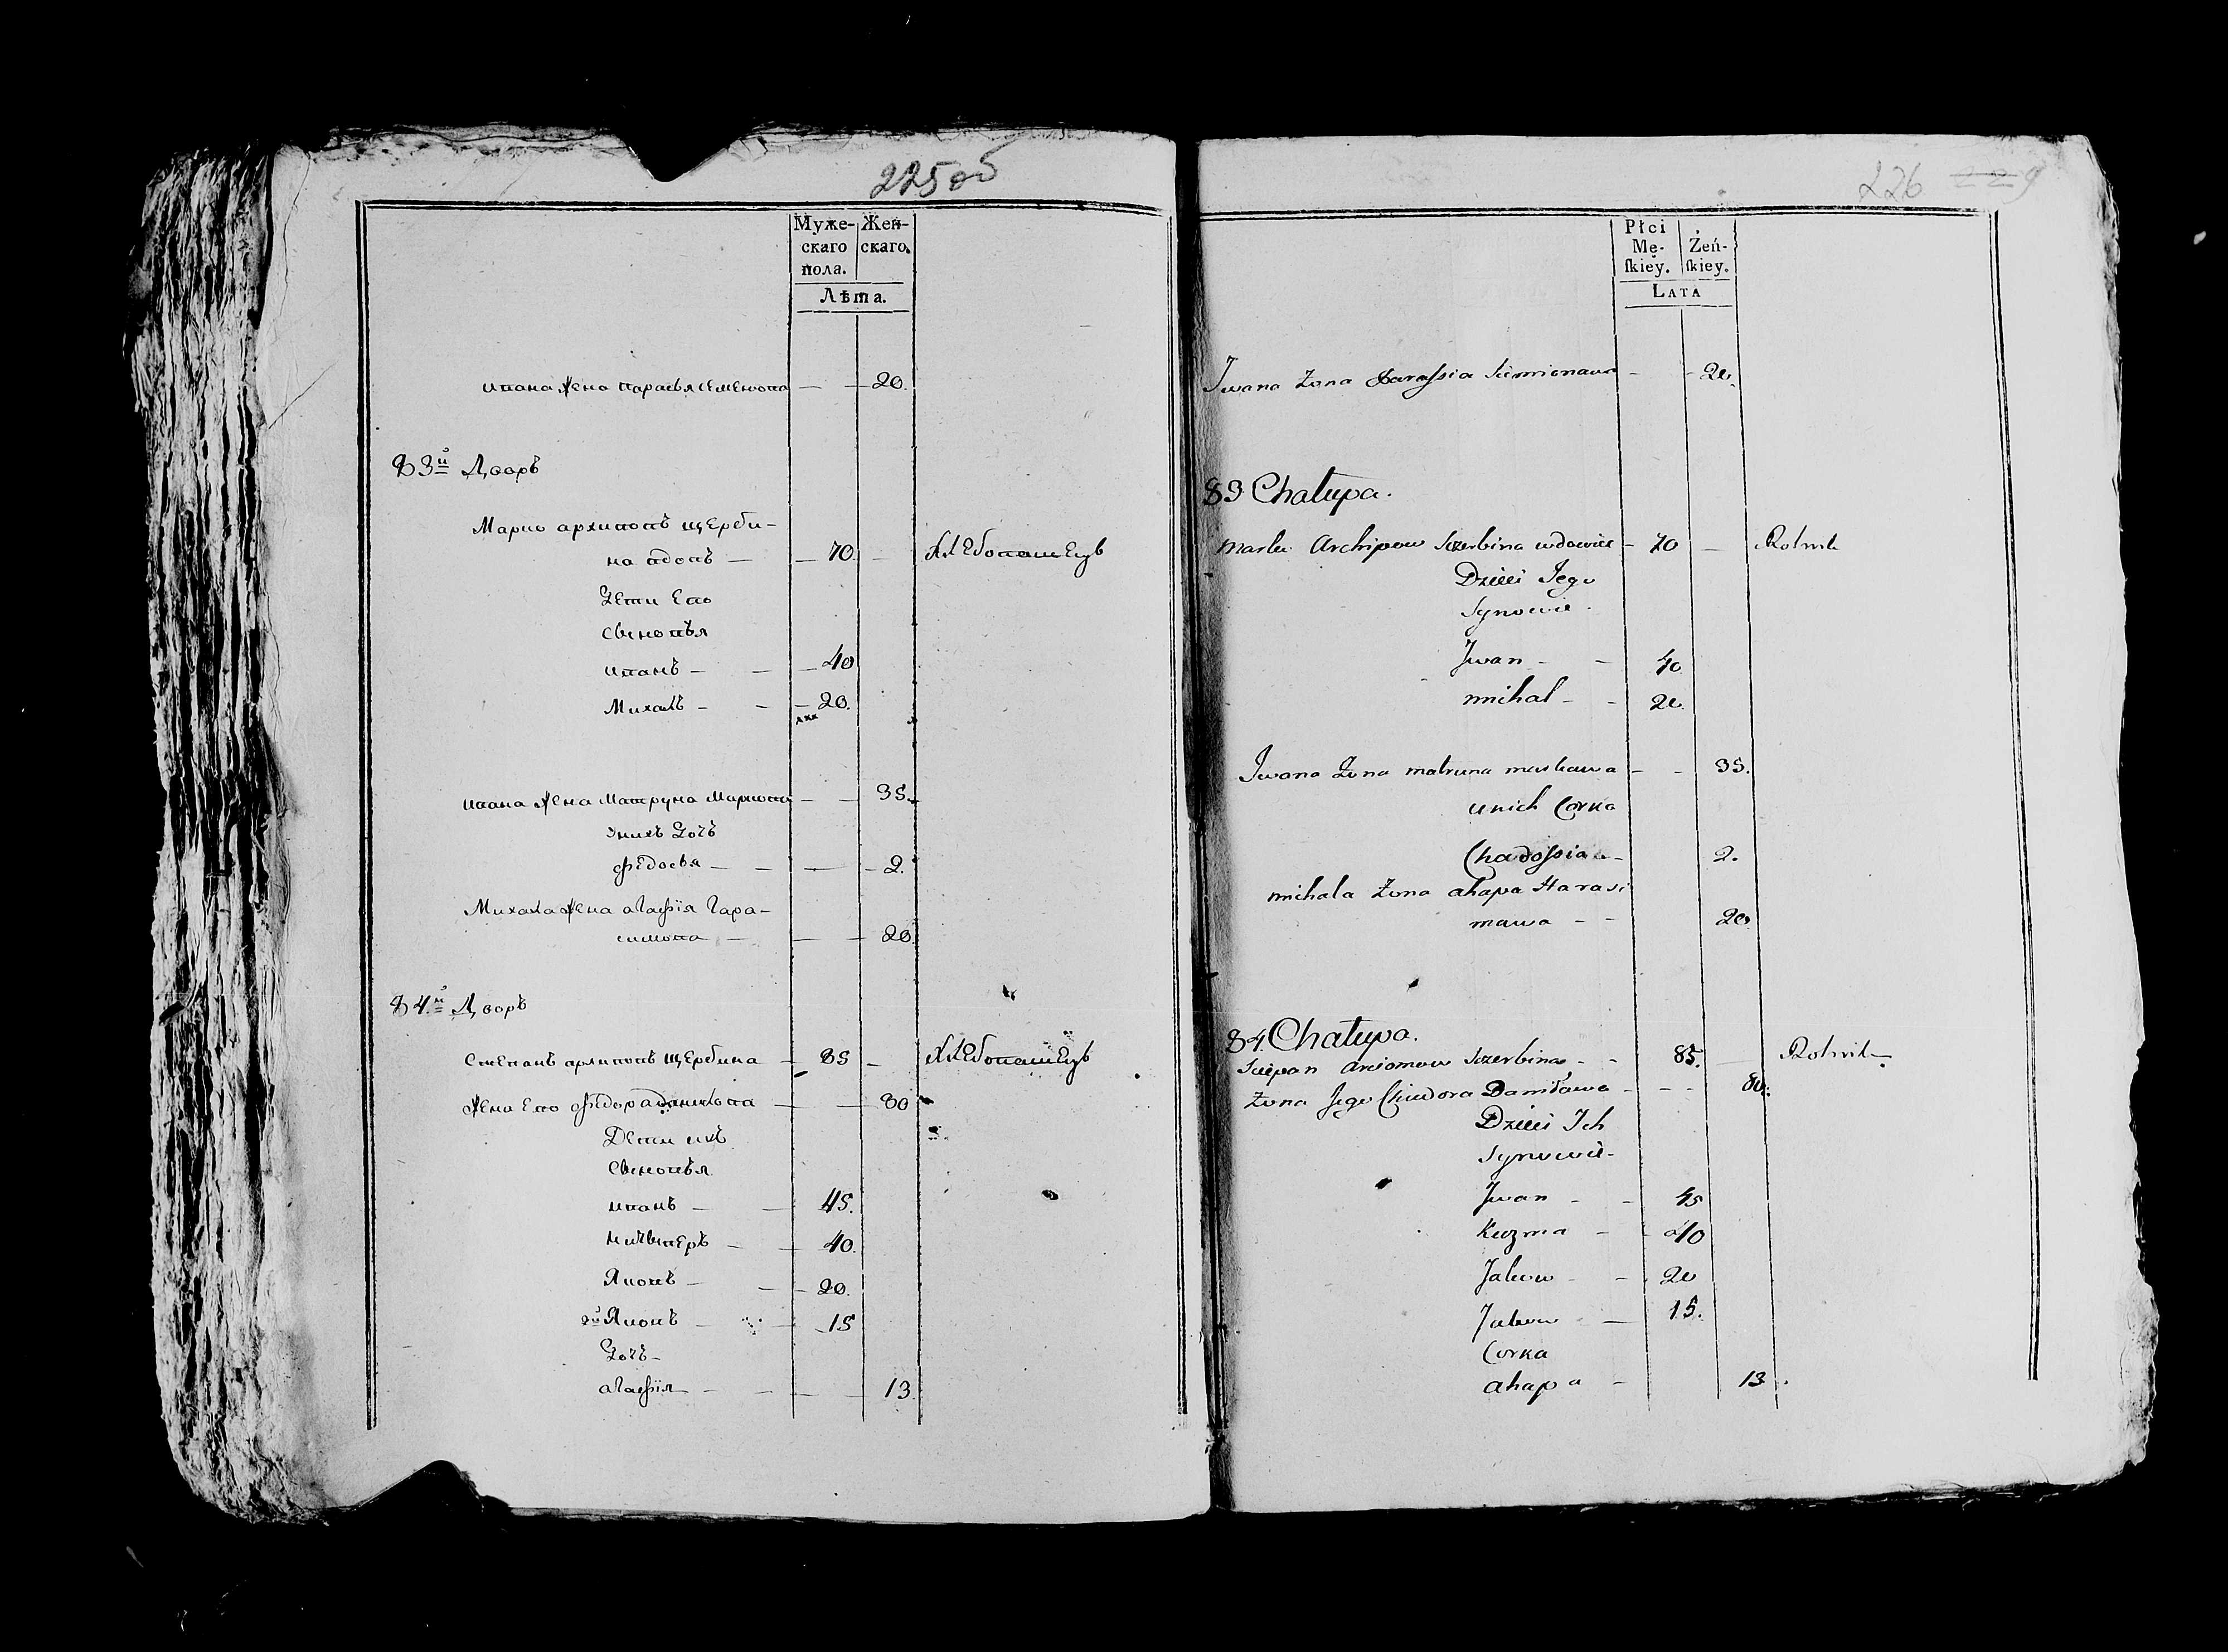 225об
Муже-
скаго
пола.
Жен-
скаго.
Лѣта.
ивана жена парасья семенова — — 20.
83й Дворъ
Марко архиповъ щерби-
на вдовъ — — 70 — хлебопашецъ
Дети Его
сыновья
иванъ — — — 40
Михалъ — — — 20.
ивана жена матруна Маркова — — 35.
Унихъ Дочь
федосья — — — — 2.
Михала жена агафія Гара-
симова — — — 20.
84й Дворъ
Степанъ архиповъ щербина — 85 — хлебопашецъ
жена Его федора данилова — — 80
Дети ихъ
Сыновья
иванъ — — 45.
— — 40.
Яковъ — — 20.
2й Яковъ — — 15
Дочь —
агафія — — — — 13
226 229
Płci
Mę-
ſkiey.
Żeń-
ſkiey.
LATA
Jwana Zona Parassia Siemionawa - - 20.
83 Chałupa.
Marko Archipow Szerbina wdowiec - 70 — Rolnik
Dzieci Jego
Synowie.
Jwan - - 40.
michał - - 20.
Jwana Zona matruna markawa - - 35.
unich Corka
Chadossia - 2.
michała Zona ahapa Harasi
mawa - - 20
84. Chałupa.
Sciepan Arciomow Szerbina - - 85. Rolnik
Zona Jego Chiedora Daniławа - - - 80.
Dzieci Jch
Synowie -
Jwan - - 45
Kuzma - - 40
Jakow - - 20
Jakow — 15.
Corka
ahapa - 13.